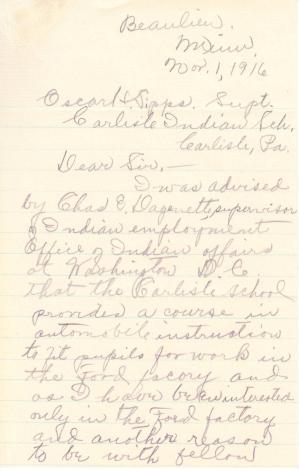 Beaulieu.
Minn.
Nov. 1, 1916
Oscar H. Lipps. Supt.
Carlisle Indian Sch,
Carlisle, Pa.
Dear Sir,—
I was advised
by Chas E. Dagenett, supervisor
of Indian employment
Office of Indian affairs
at Washington D.C
that the Carlisle school
provides a course in
automobile instruction
to fit pupils for work in
the Ford facory and
as I have been interested
only in the Ford factory
and another reason
to be with fellow